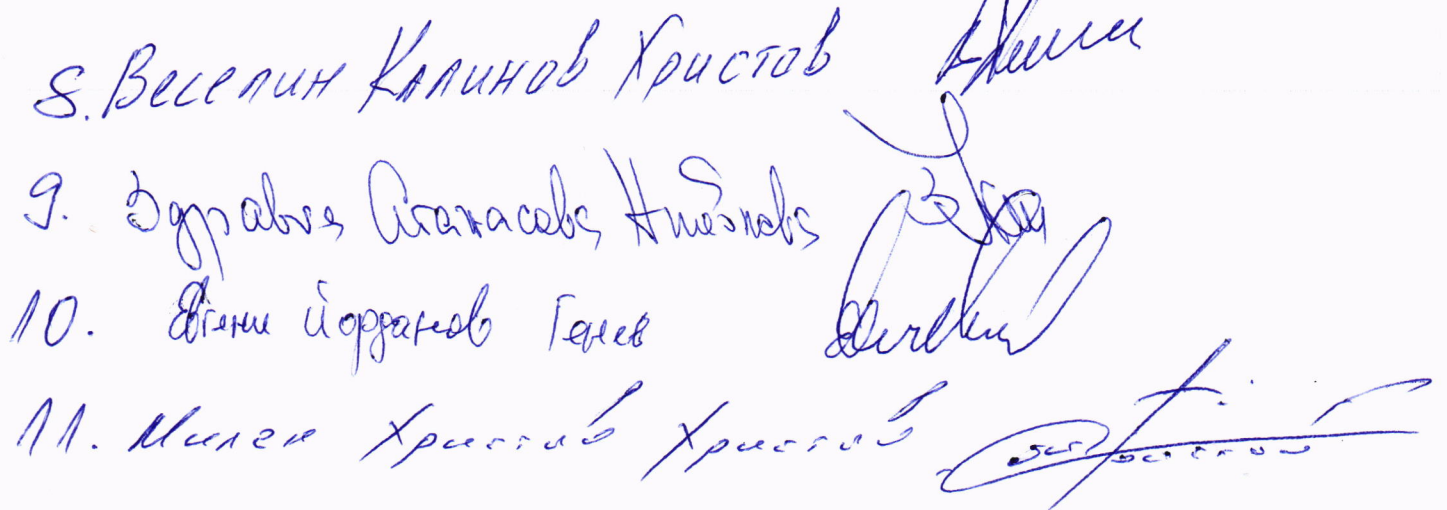 8. Веселин Калинов Христов
9. Здравка Атанасова
10. Евгени Йорданов Генев
11. Милен Христов Христов